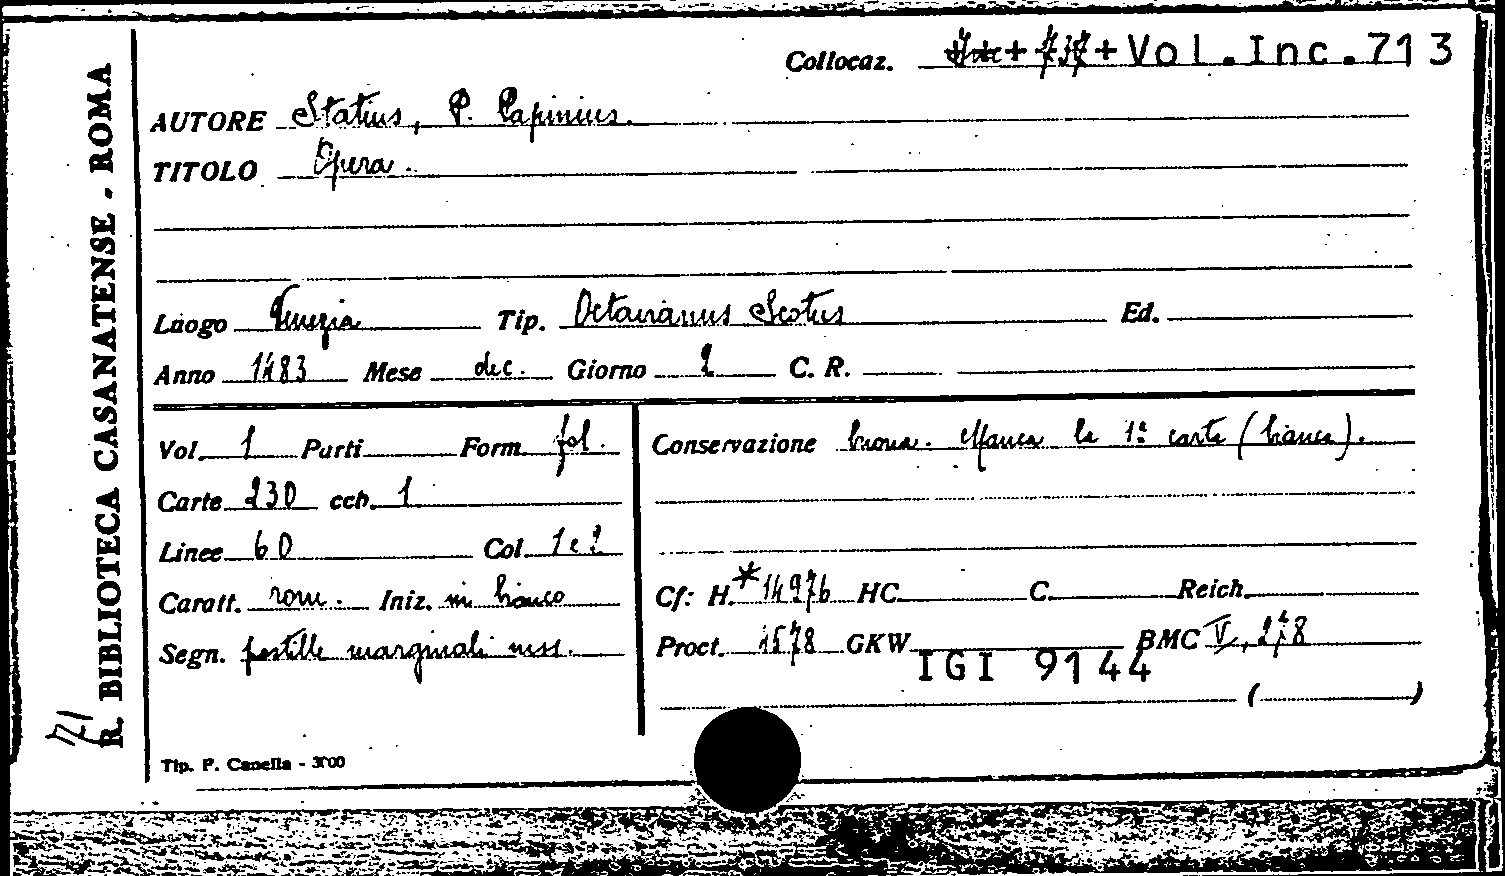 Collocaz. Vol.Inc.713
AUTORE Statius, P. Papinius.
TITOLO Opera.
Luogo Venezia Tip. Octavianus Scotus Ed.
Anno 1483 Mese dec. Giorno 2 C. R.
Vol. 1 Parti Form. fol.
Carte 230 ccb. 1
Linee 60 Col. 1 e 2
Caratt. rom. Iniz. in bianco
Segn. postille marginali mss.
Conservazione buona. Manca la 1ª carta (bianca).
Cf: H. *14976 HC. C. Reich.
Proct. 4578 GKW BMC V, 278
IGI 9144
( )
Tip. P. Canella - 3000
R. BIBLIOTECA CASANATENSE - ROMA